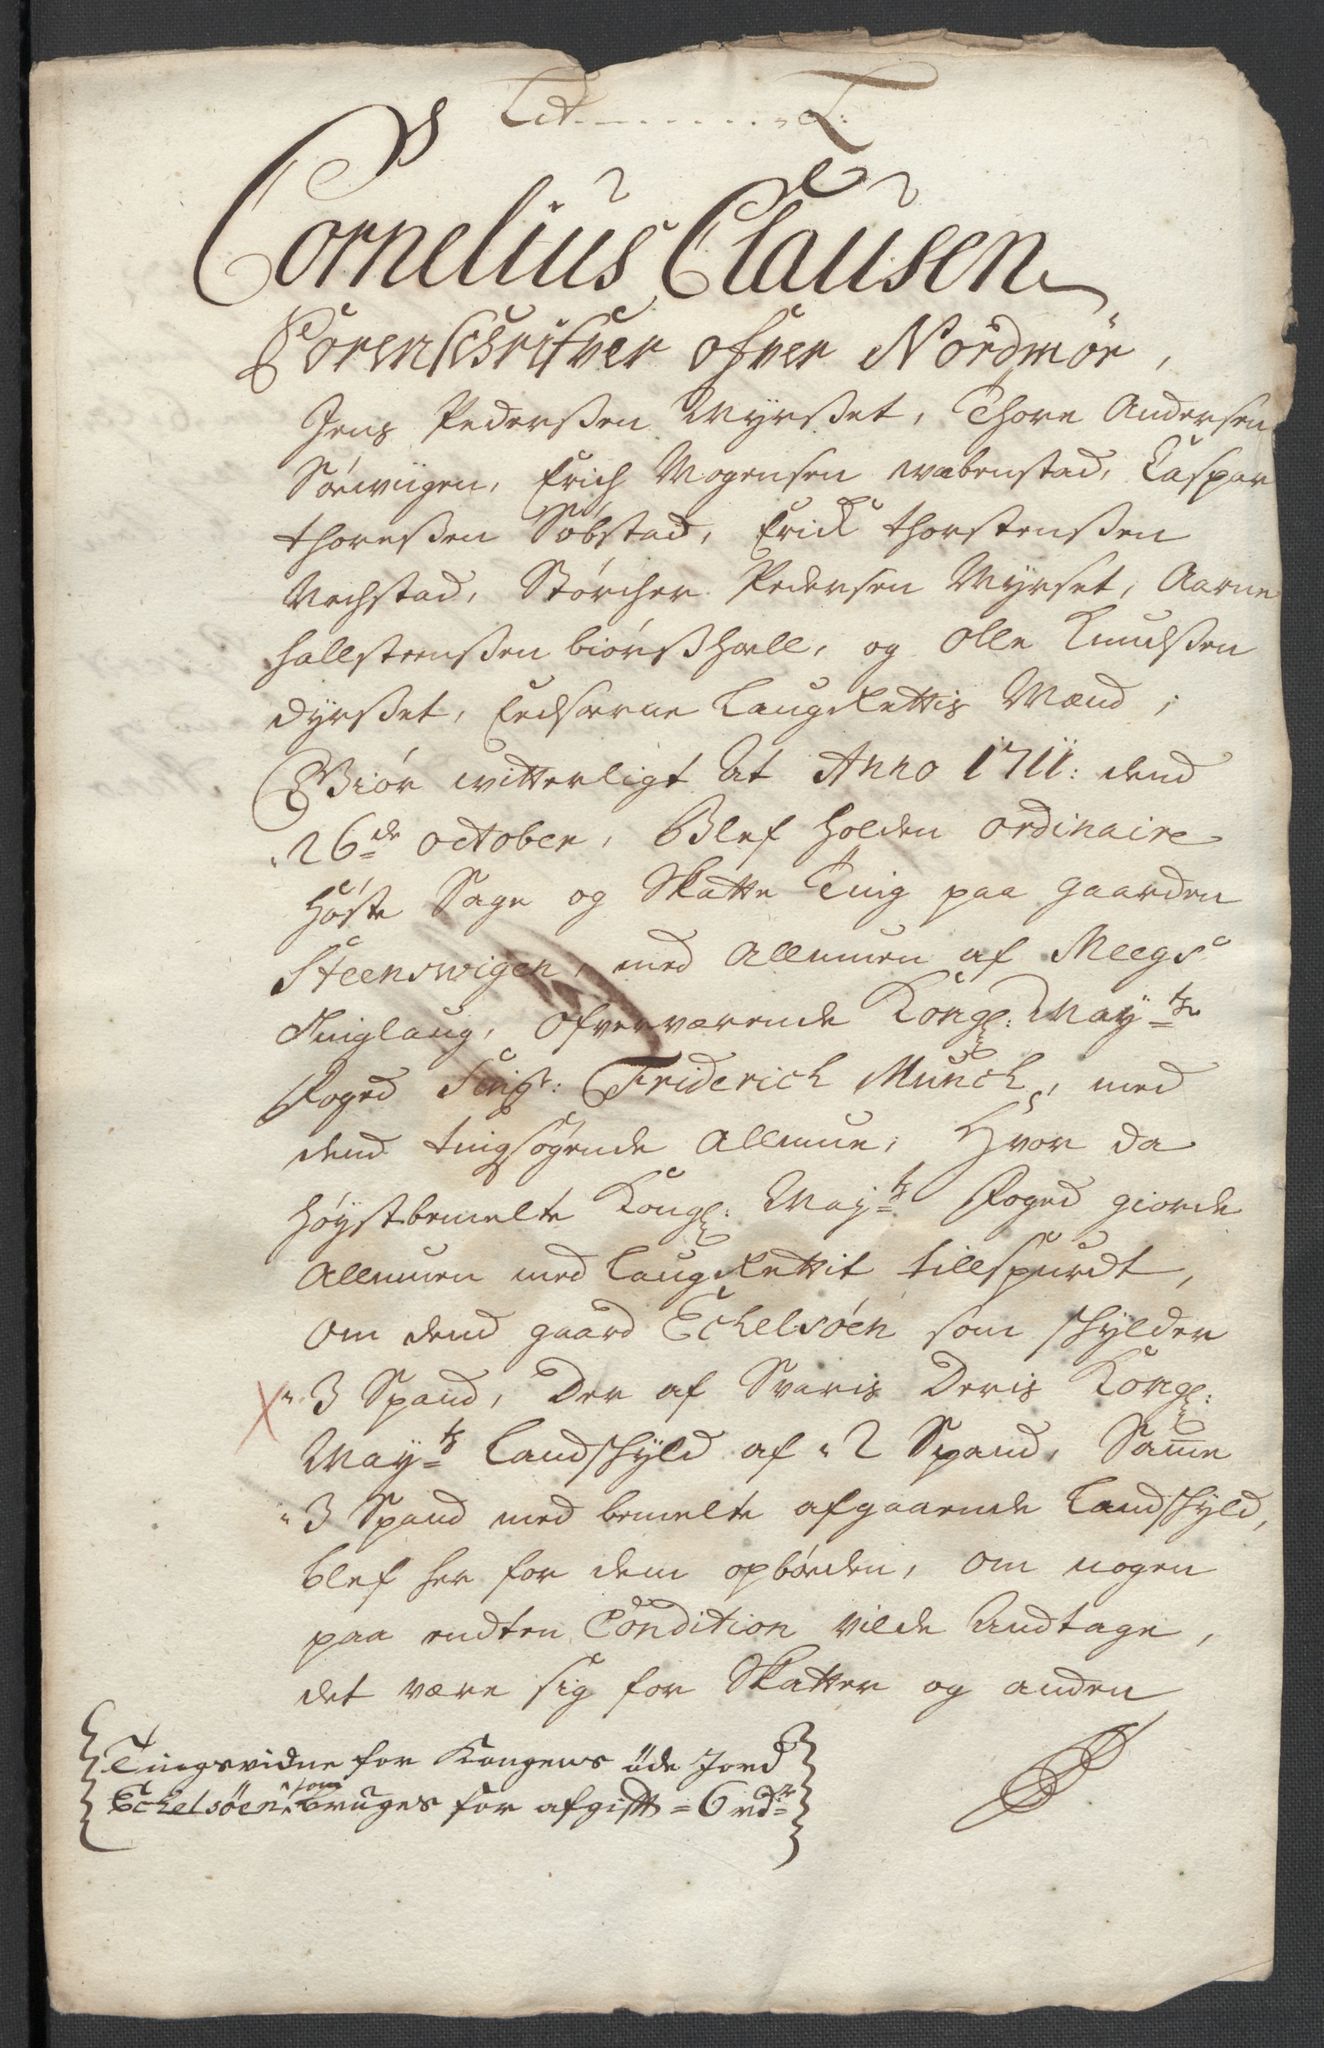 Lit. . . . . . . . . . L:
Cornelius Clausen
Sorenschrifver ofver Nordmør,
Jens Pederssen Myrsset, Thore Andersen
Sørwiigen, Erich Mogensen wabenstad, Caspar
Thoressen Søbstad, Erick Thorstenssen
Vechstad, Størcher Pedersen Myrset, Aarne
Hallsteenssen biørsshæll, og Olle Knudssen
dyrsset, Eedsorne LaugRettis Mænd;
Giør witterligt At Anno 1711: dend
26de october, Blef holden ordinaire
Høste Sage og Skatte Ting paa gaarden
Steenswigen, med Allmuen af Meegs
Tinglaug, Ofverværende Kongl: Mayts
Foged Sigr: Friderich Munch, med
dend tingsøgende Allmue, Hvor da
høystbemelte Kongl: Mayts Foged giorde
Allmuen med LaugRettit tillspurdt,
om dend gaard Echelsøen som skylder
3 Spand, Der af Svaris Deris Kongl:
Mayts Landskyld af 2 Spand, Samme
3 Spand med bemelte afgaaende Landskyld,
blef her for dem opbøeden, om nogen
paa endten Condition vilde Andtage,
det være sig for Skatter og anden
Tingsvidne for Kongens öde Jord
Echelsöen som bruges for afgift = 6 rdr